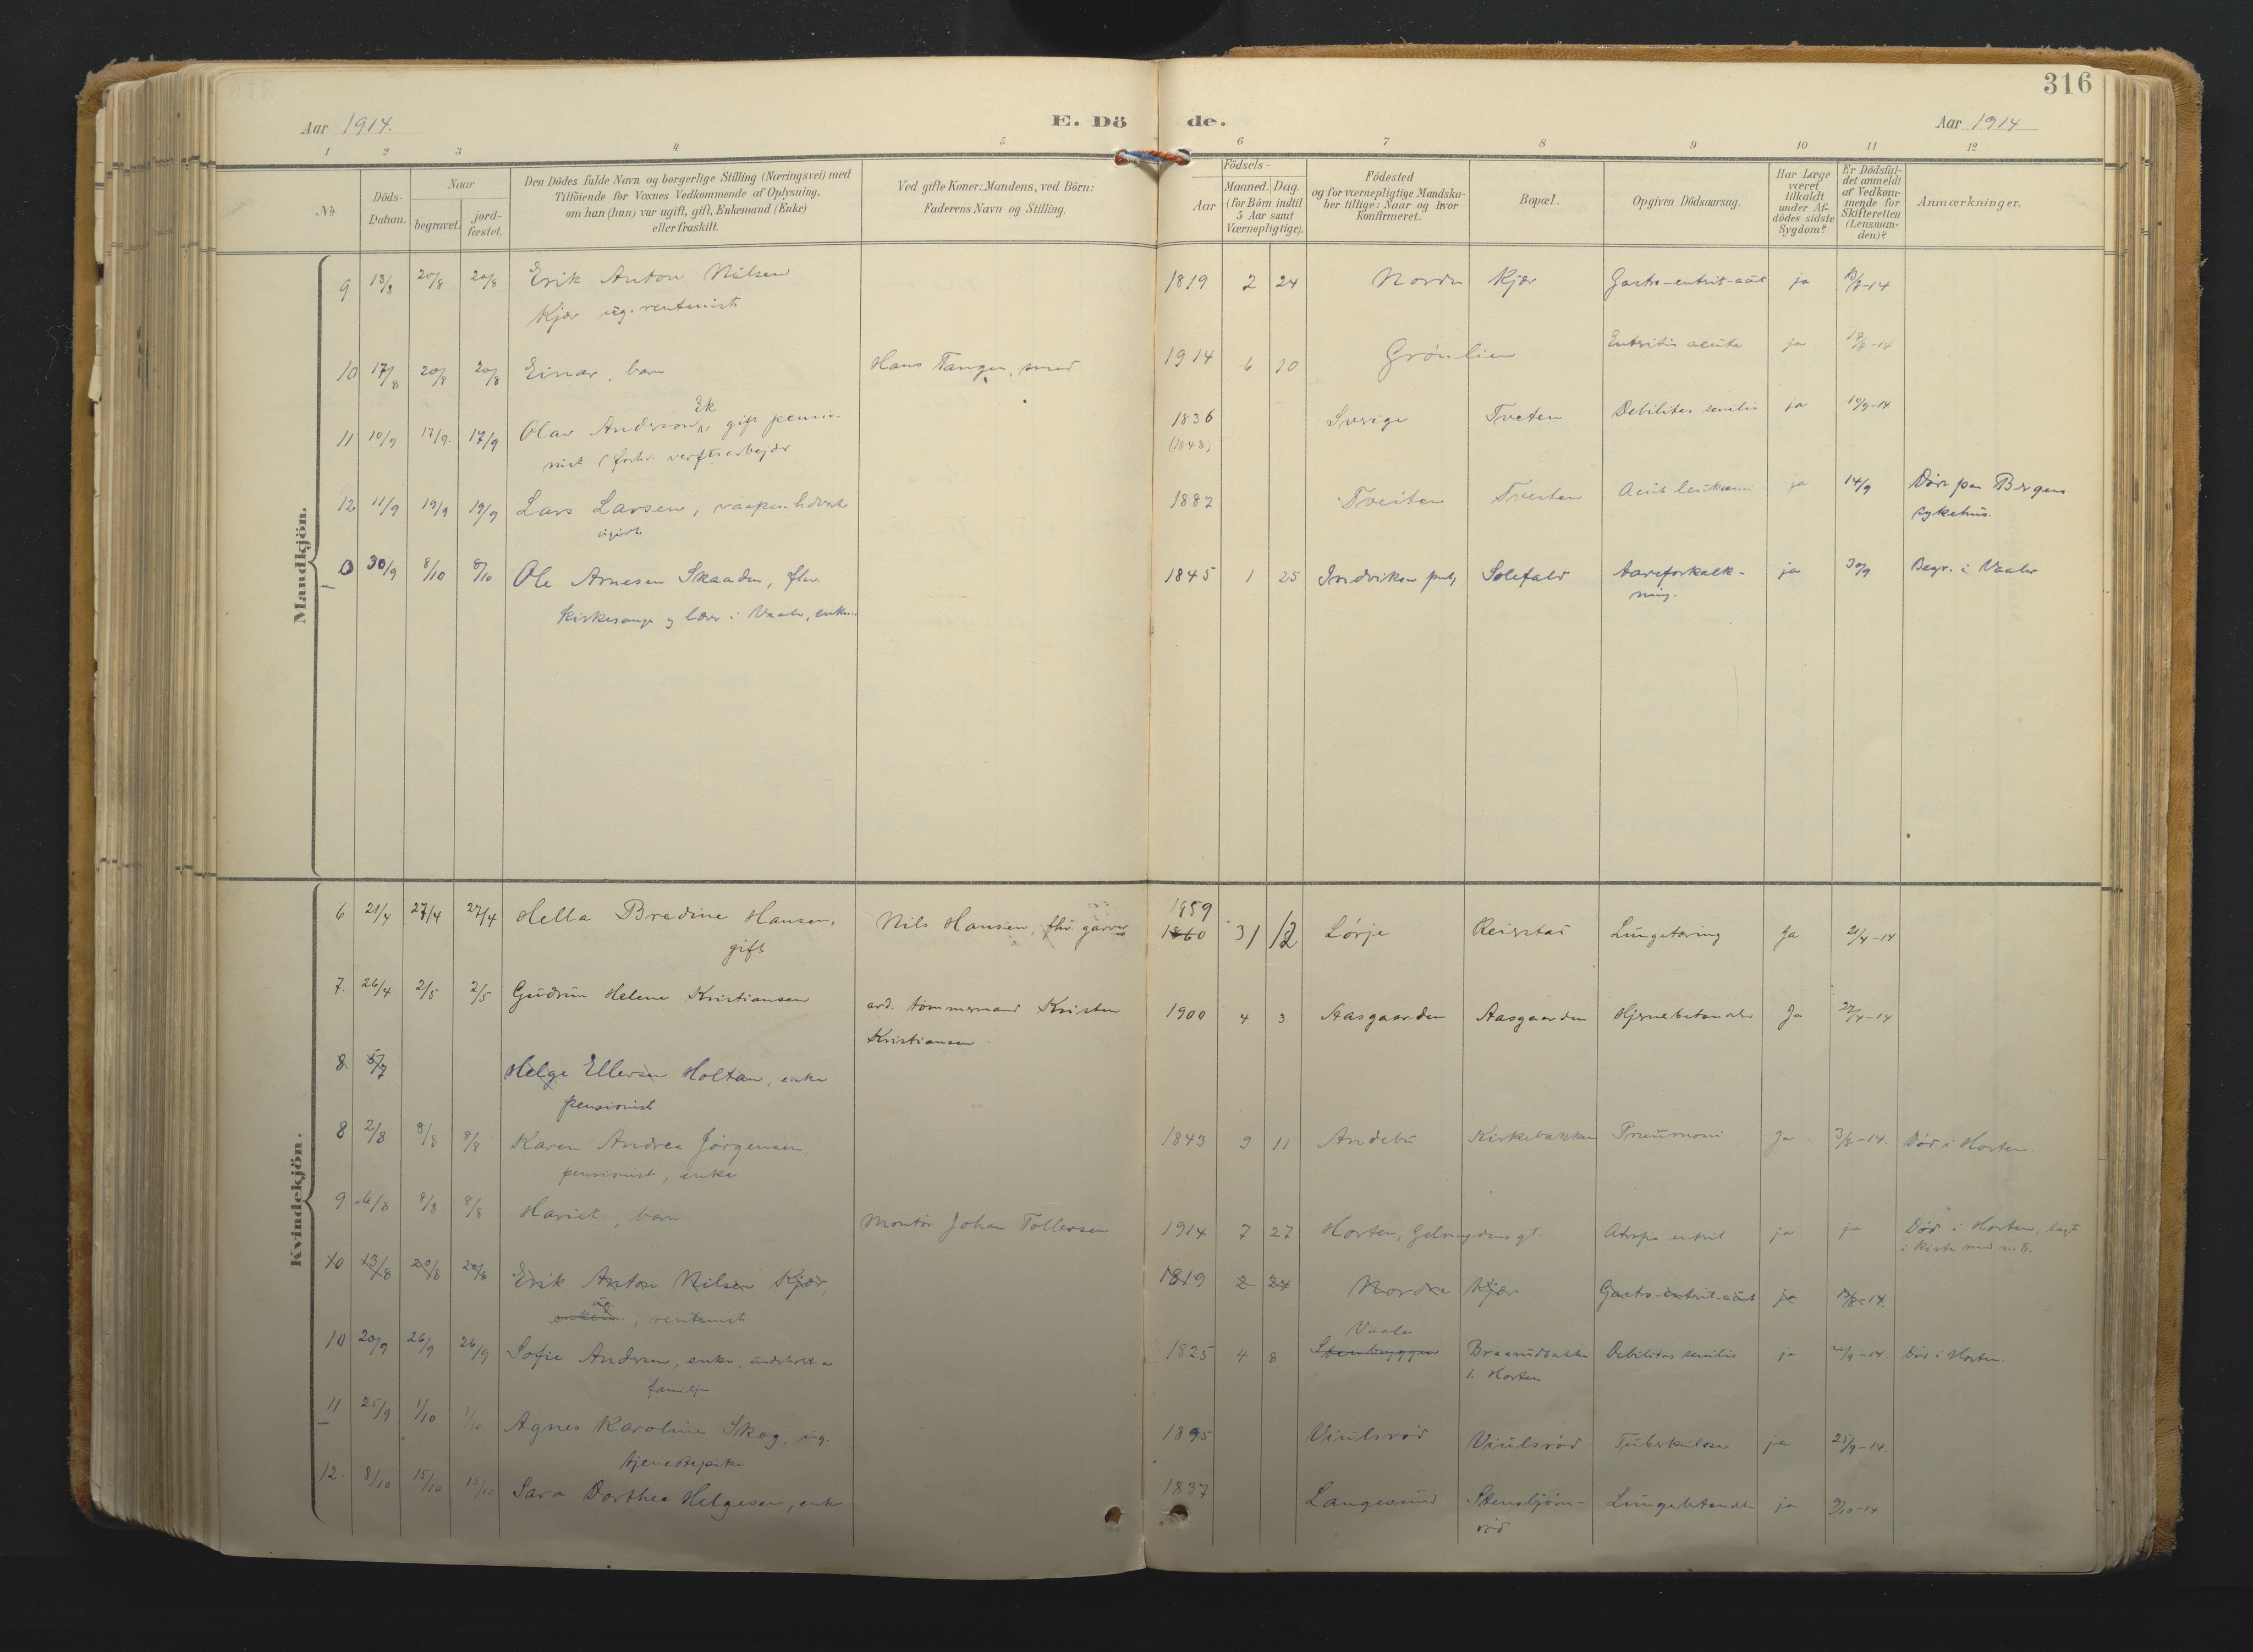 316
Aar 1914.
E. Dö de.
Aar 1914
1 2 3 4 5 6 7 8 9 10 11 12
No
Döds-
Datum.
Naar
begravet.
jord-
fæstet.
Den Dödes fulde Navn og borgerlige Stilling (Næringsvei) med
Tilföiende for Voxnes Vedkommende af Oplysning,
om han (hun) var ugift, gift, Enkemand (Enke)
eller fraskilt.
Ved gifte Koner: Mandens, ved Börn:
Faderens Navn og Stilling.
Födsels-
Aar
Maaned. Dag.
(for Börn indtil
5 Aar samt
Værnepligtige).
Födested
og for værnepligtige Mandska-
ber tillige: Naar og hvor
konfirmeret.
Bopæl.
Opgiven Dödsaarsag.
Har Læge
været
tilkaldt
under Af-
dödes sidste
Sygdom?
Er Dödsfal-
det anmeldt
af Vedkom-
mende for
Skifteretten
(Lensman-
den)?
Anmærkninger.
Mandkjön.
9 13/8 20/8 20/8 Erik Anton Nilsen 1819 2 24 Nordre Kjær Gastro-entrit-acut ja 13/8-14
Kjær ug. rentenist
10 17/8 20/8 20/8 Einar, barn Hans Tangen, smed 1914 6 10 Grönlien Entritis acuta ja 18/8-14
Ek
11 10/9 17/9. 17/9 Olav Anderson gift pensio- 1836 Sverige Tveten Debilitas senilis ja 10/9-14
nist (forhv. verftsarbejder (1848)
12 11/9 19/9 19/9 Lars Larsen, vaapen 1887 Tveiten Tveiten Acut leukæmi ja 14/9 Död paa Bergens
ugift sykehus.
13 30/9 8/10 8/10 Ole Arnesen Skaaden, fhv. 1845 1 25 Indviken Solefald Aareforkalk- ja 30/9 Begr. i Vaaler
kirkesanger og lærer i Vaaler, enkem. ning.
Kvindekjön.
6 21/4 27/4 27/4 Hella Bradine Hansen, Nils Hansen, fhv. garver 1859 1860 31 12 Lörje Reirstad Lungetæring Ja 21/4-14
gift
7. 26/4 2/5 2/5 Gudrun Helene Kristiansen ard. tömmermand Kristen 1900 4 3 Aasgaarden Aasgaarden Hjernebetændelse Ja 27/4-14
Kristiansen
8 5/7 Helge Ellersen Holtan, enke
pensionist
8 2/8 8/8 8/8 Karen Andrea Jörgensen, 1843 9 11 Andebu Kirkebakken Pneumoni Ja 3/8-14. Död i Horten.
pensionist, enke
9 4/8 8/8 8/8 Hariet, barn Montör Johan Tollersen 1914 7 27 Horten, gt. Atrofia entrit ja ja Död i Horten, lagt
i kiste med nr. 8.
10 13/8 20/8 20/8 Erik Anton Nilsen Kjær, 1819 2 24 Nordre Kjær Gastro-entrit-acut ja 13/8-14.
ug.
enkem., rentenist
10 20/9 26/9 26/9 Sofie Andersen, enke, underholdt av 1825 4 8 Vaale Stenbryggen Braarudbakken Debilitas senilis ja 21/9-14. Död i Horten.
familje i Horten
11 25/9 1/10 1/10 Agnes Karoline Skog, ug. 1895 Viulsröd Viulsröd Tuberkulose ja 25/9-14.
tjenestepike
12. 8/10 15/10 15/10 Sara Dorthea Helgesen, enke 1837 Langesund Stensbjörn- Lungebetændelse ja 9/10-14
röd